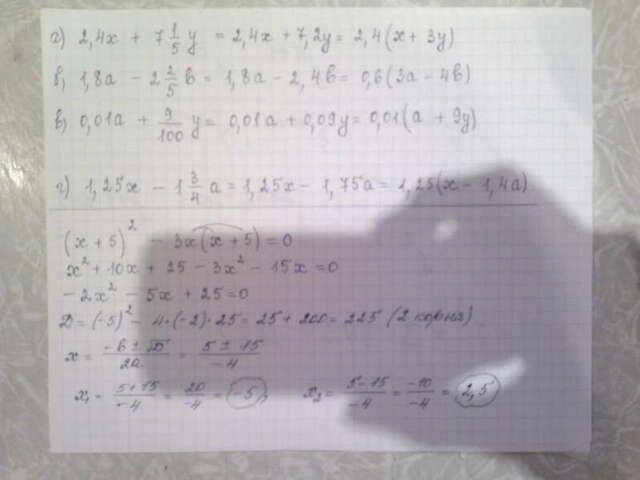 а) 2,4x + 7 1/5 y = 2,4x + 7,2y = 2,4(x + 3y)
б) 1,8a - 2 2/5 b = 1,8a - 2,4b = 0,6(3a - 4b)
в) 0,01a + 9/100 y = 0,01a + 0,09y = 0,01(a + 9y)
г) 1,25x - 1 3/4 a = 1,25x - 1,75a = 1,25(x - 1,4a)
(x + 5)² - 3x(x + 5) = 0
x² + 10x + 25 - 3x² - 15x = 0
-2x² - 5x + 25 = 0
D = (-5)² - 4·(-2)·25 = 25 + 200 = 225 (2 корня)
x = (-b ± √D)/2a = (5 ± 15)/-4
x₁ = (5+15)/-4 = 20/-4 = -5, x₂ = (5-15)/-4 = -10/-4 = 2,5